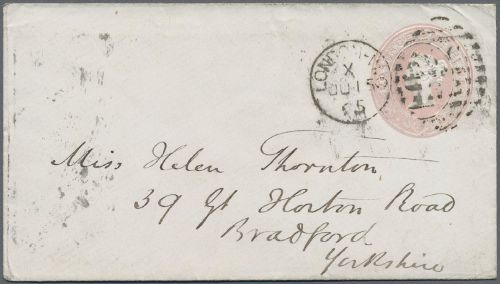 LONDON-N.W
X
JU 15
65
Miss Helen Thornton
39 Gt Horton Road
Bradford
Yorkshire